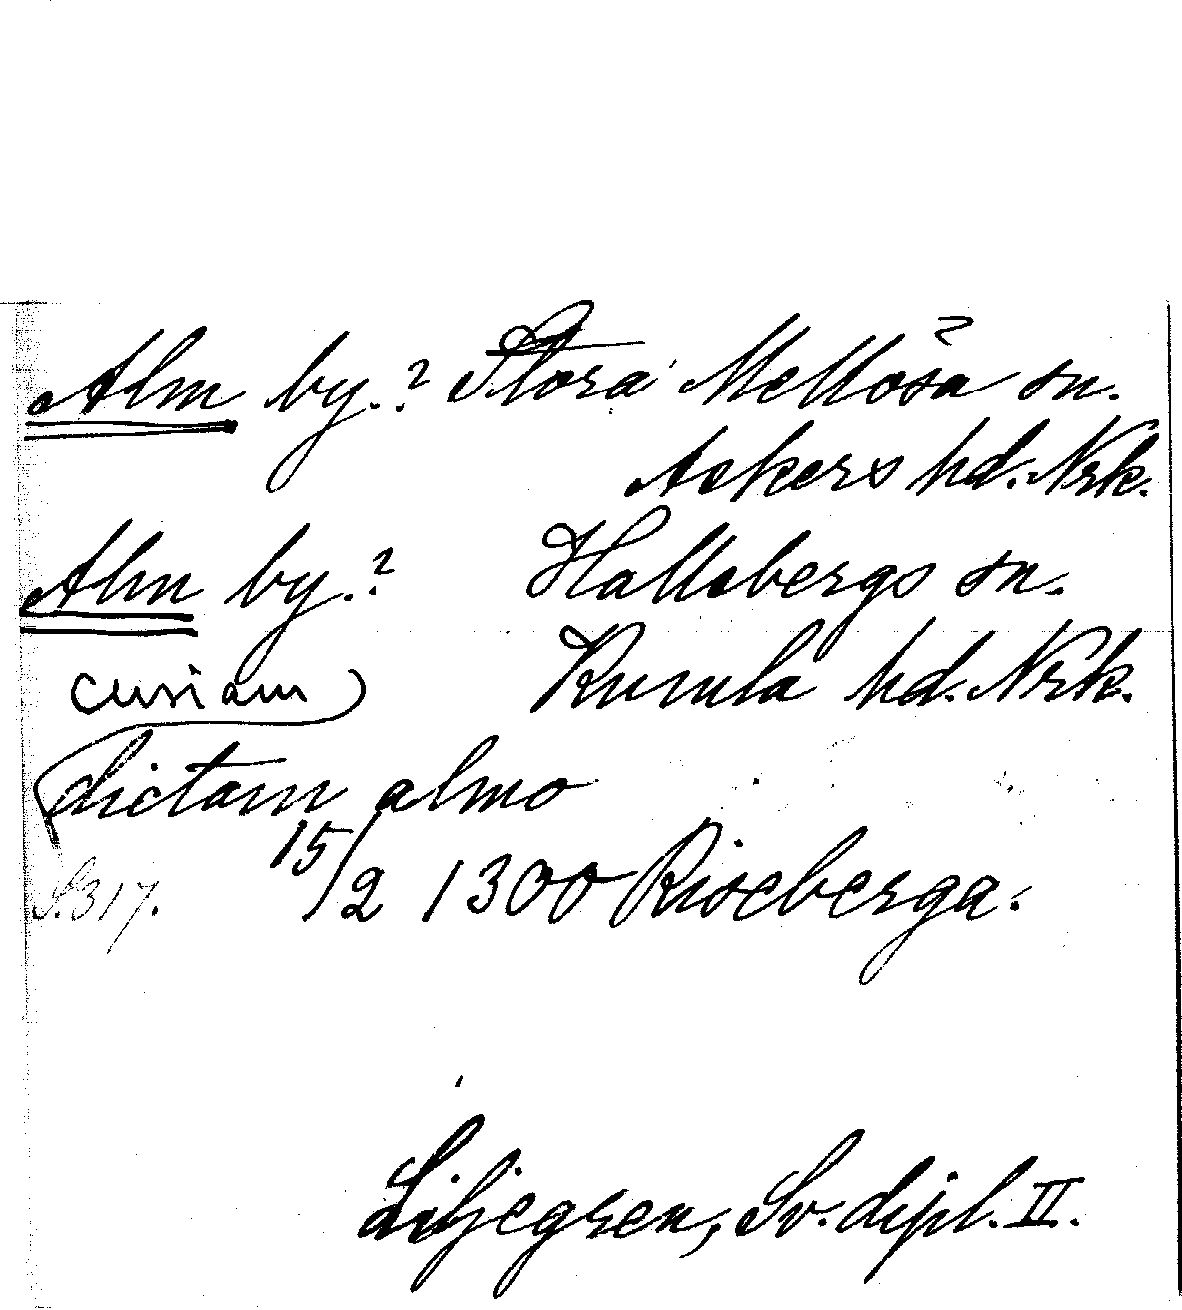 Alm by.? Stora Mellösa sn.
Askers hd. Nrk.
Alm by.? Hallsbergs sn.
Kumla hd. Nrk.
curiam
dictam almo
S. 317. 15/2 1300 Riseberga.
Liljegren, Sv. dipl. II.